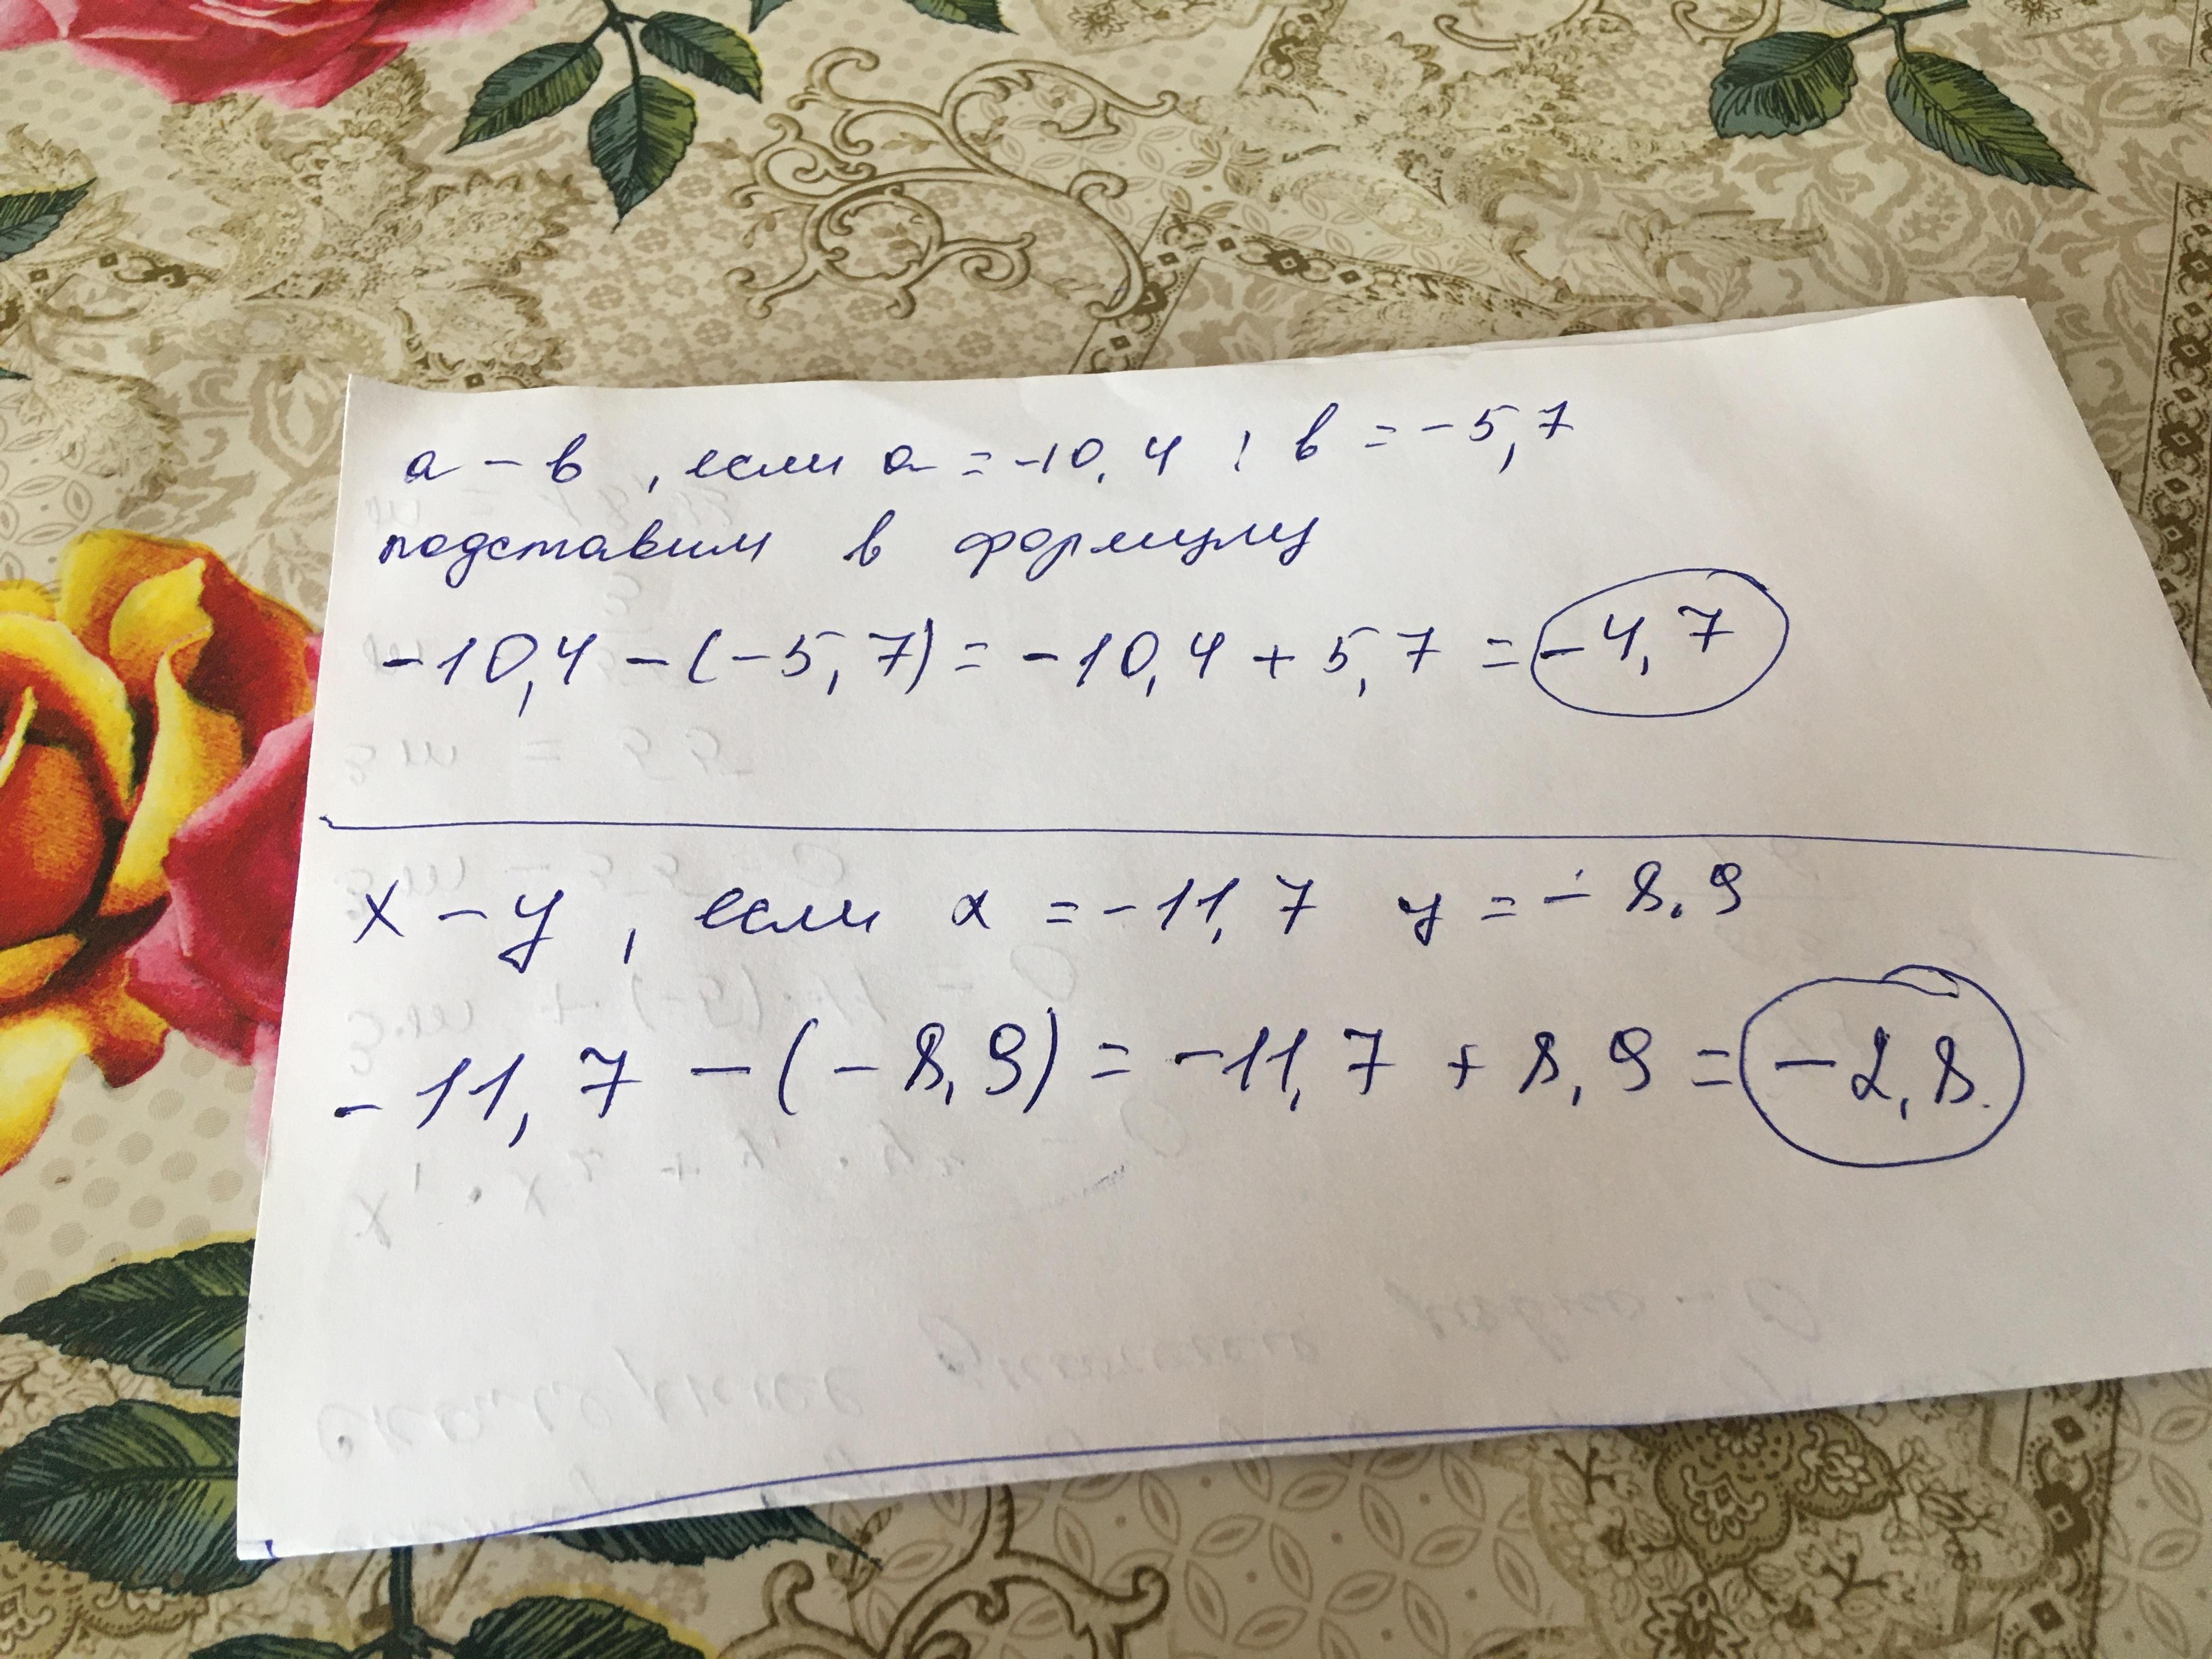 а - в , если а = -10,4 ; в = -5,7
подставим в формулу
-10,4 - (-5,7) = -10,4 + 5,7 = -4,7
x - y , если x = -11,7 y = - 8,9
-11,7 - (-8,9) = -11,7 + 8,9 = -2,8.